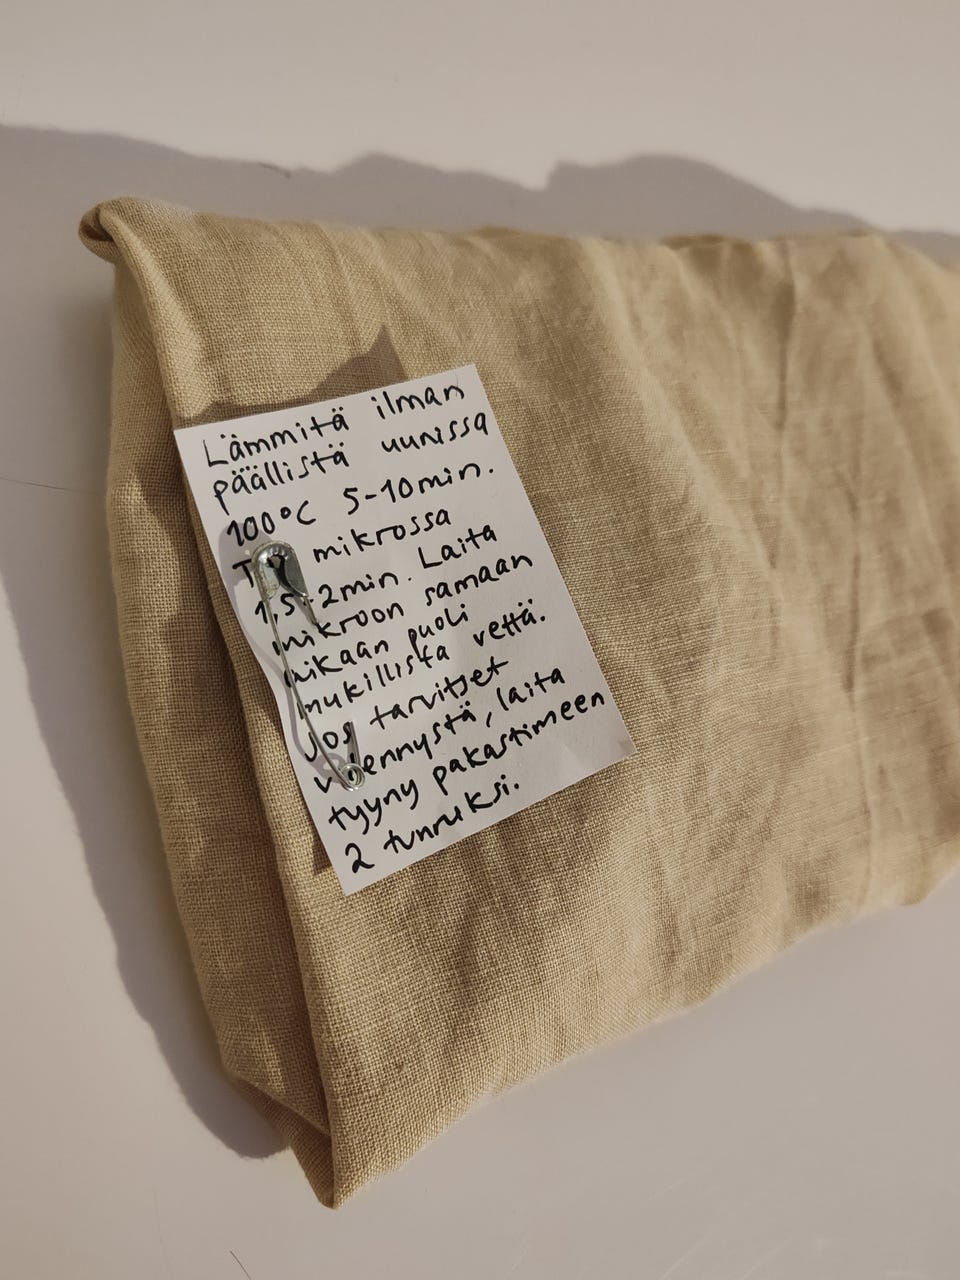 Lämmitä ilman
päällistä uunissa
100°C 5-10min.
mikrossa
1,5-2min. Laita
mikroon samaan
aikaan puoli
mukillista vettä.
Jos tarvitset
viilennystä, laita
tyyny pakastimeen
2 tunniksi.